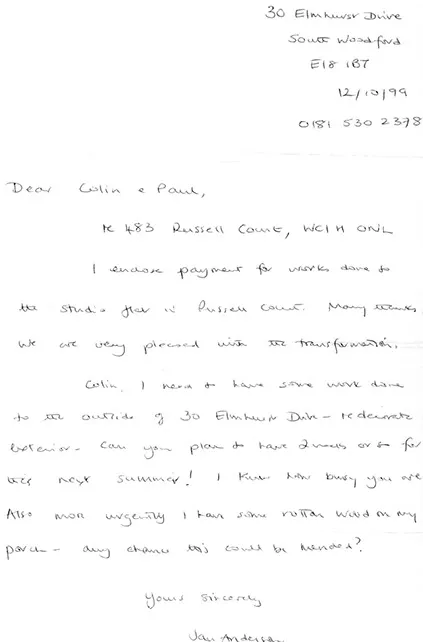 30 Elmhurst Drive
South Woodford
E18 1B7
12/10/99
0181 530 2378
Dear Colin & Paul,
re 483 Russell Court, WC1H 0NL
I enclose payment for works done to
the studio flat in Russell Court. Many thanks
We are very pleased with the transformation.
Colin, I need to have some work done
to the outside of 30 Elmhurst Drive - redecorate
exterior - Can you plan to have 2 weeks or so for
this next summer! I know how busy you are
Also more urgently I have some rotten wood on my
porch - any chance this could be mended?
Yours sincerely
Jan Anderson